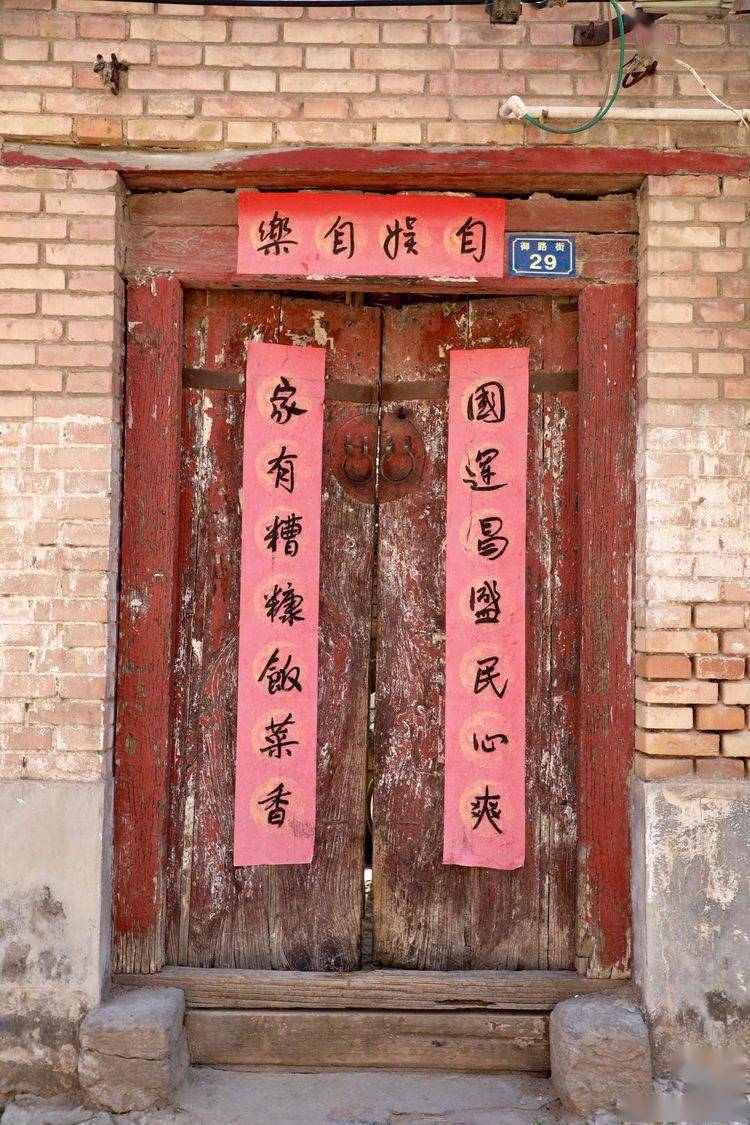 自娱自樂
御路街
29
國運昌盛民心爽
家有糟糠飯菜香